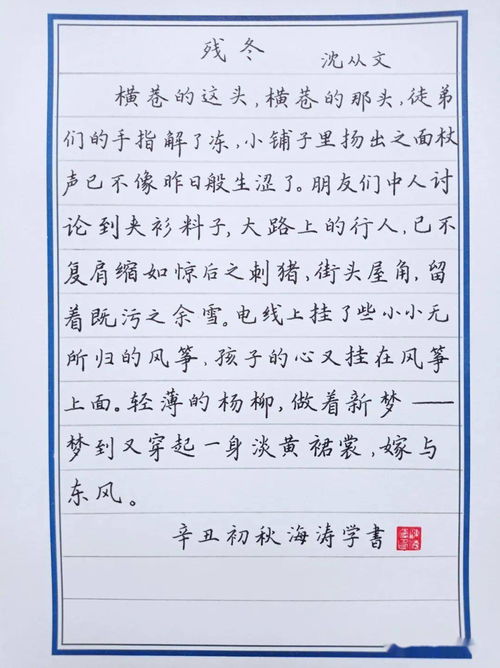 残冬 沈从文
横巷的这头，横巷的那头，徒弟
们的手指解了冻，小铺子里扬出之面杖
声已不像昨日般生涩了。朋友们中人讨
论到夹衫料子，大路上的行人，已不
复肩缩如惊后之刺猪，街头屋角，留
着既污之余雪。电线上挂了些小小无
所归的风筝，孩子的心又挂在风筝
上面。轻薄的杨柳，做着新梦——
梦到又穿起一身淡黄裙裳，嫁与
东风。
辛丑初秋海涛学书